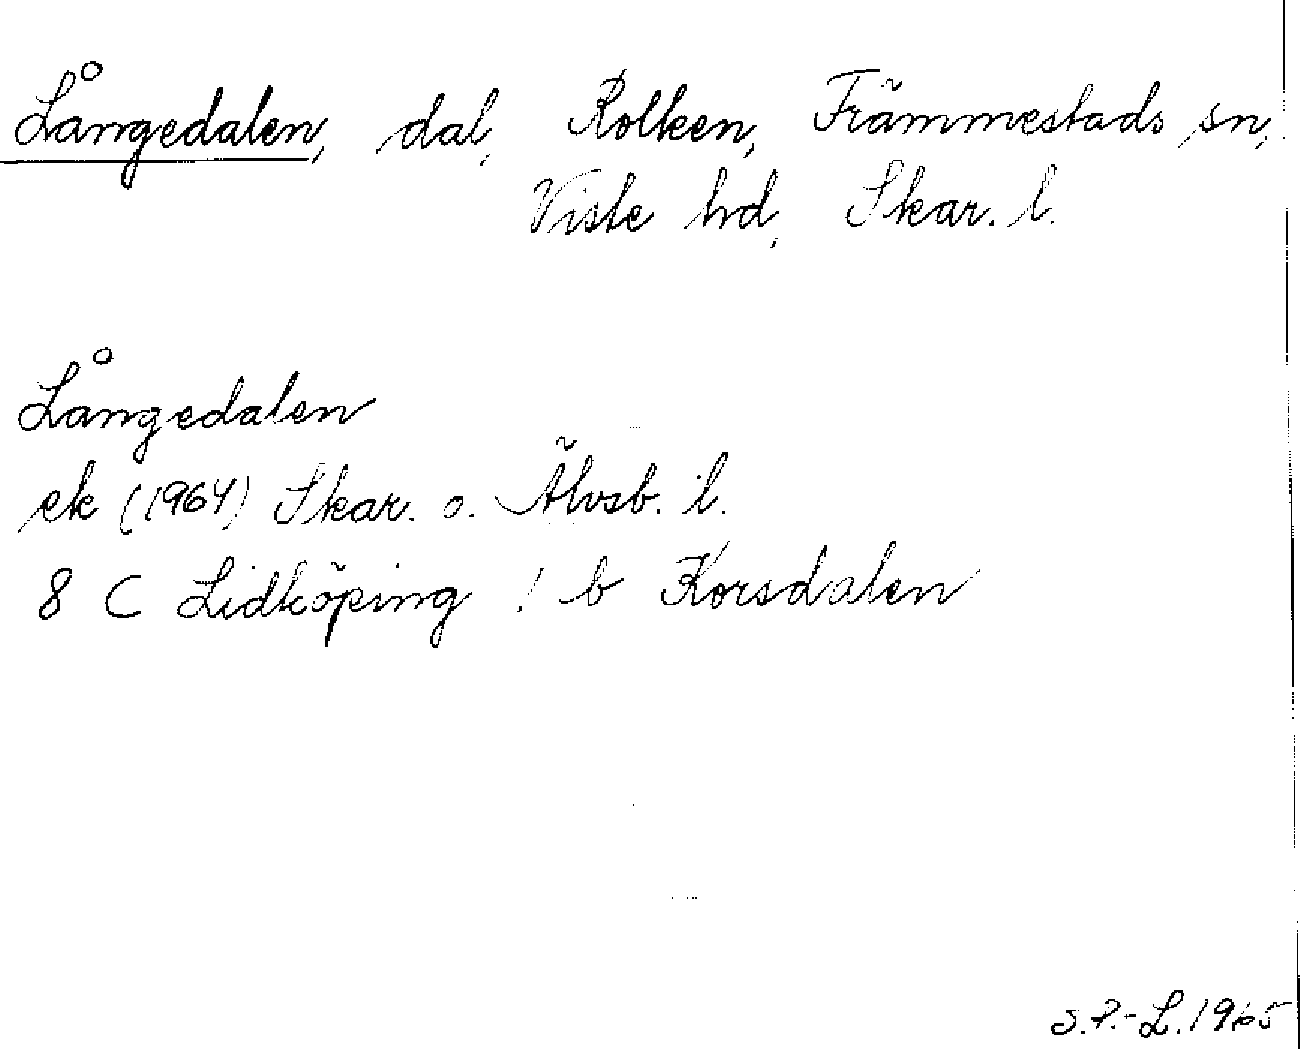 Långedalen, dal, Rolken, Främmestads sn,
Viste hd, Skar. l.
Långedalen
ek (1964) Skar. o. Älvsb. l.
8 C Lidköping ! b Korsdalen
S.P.-L. 1965